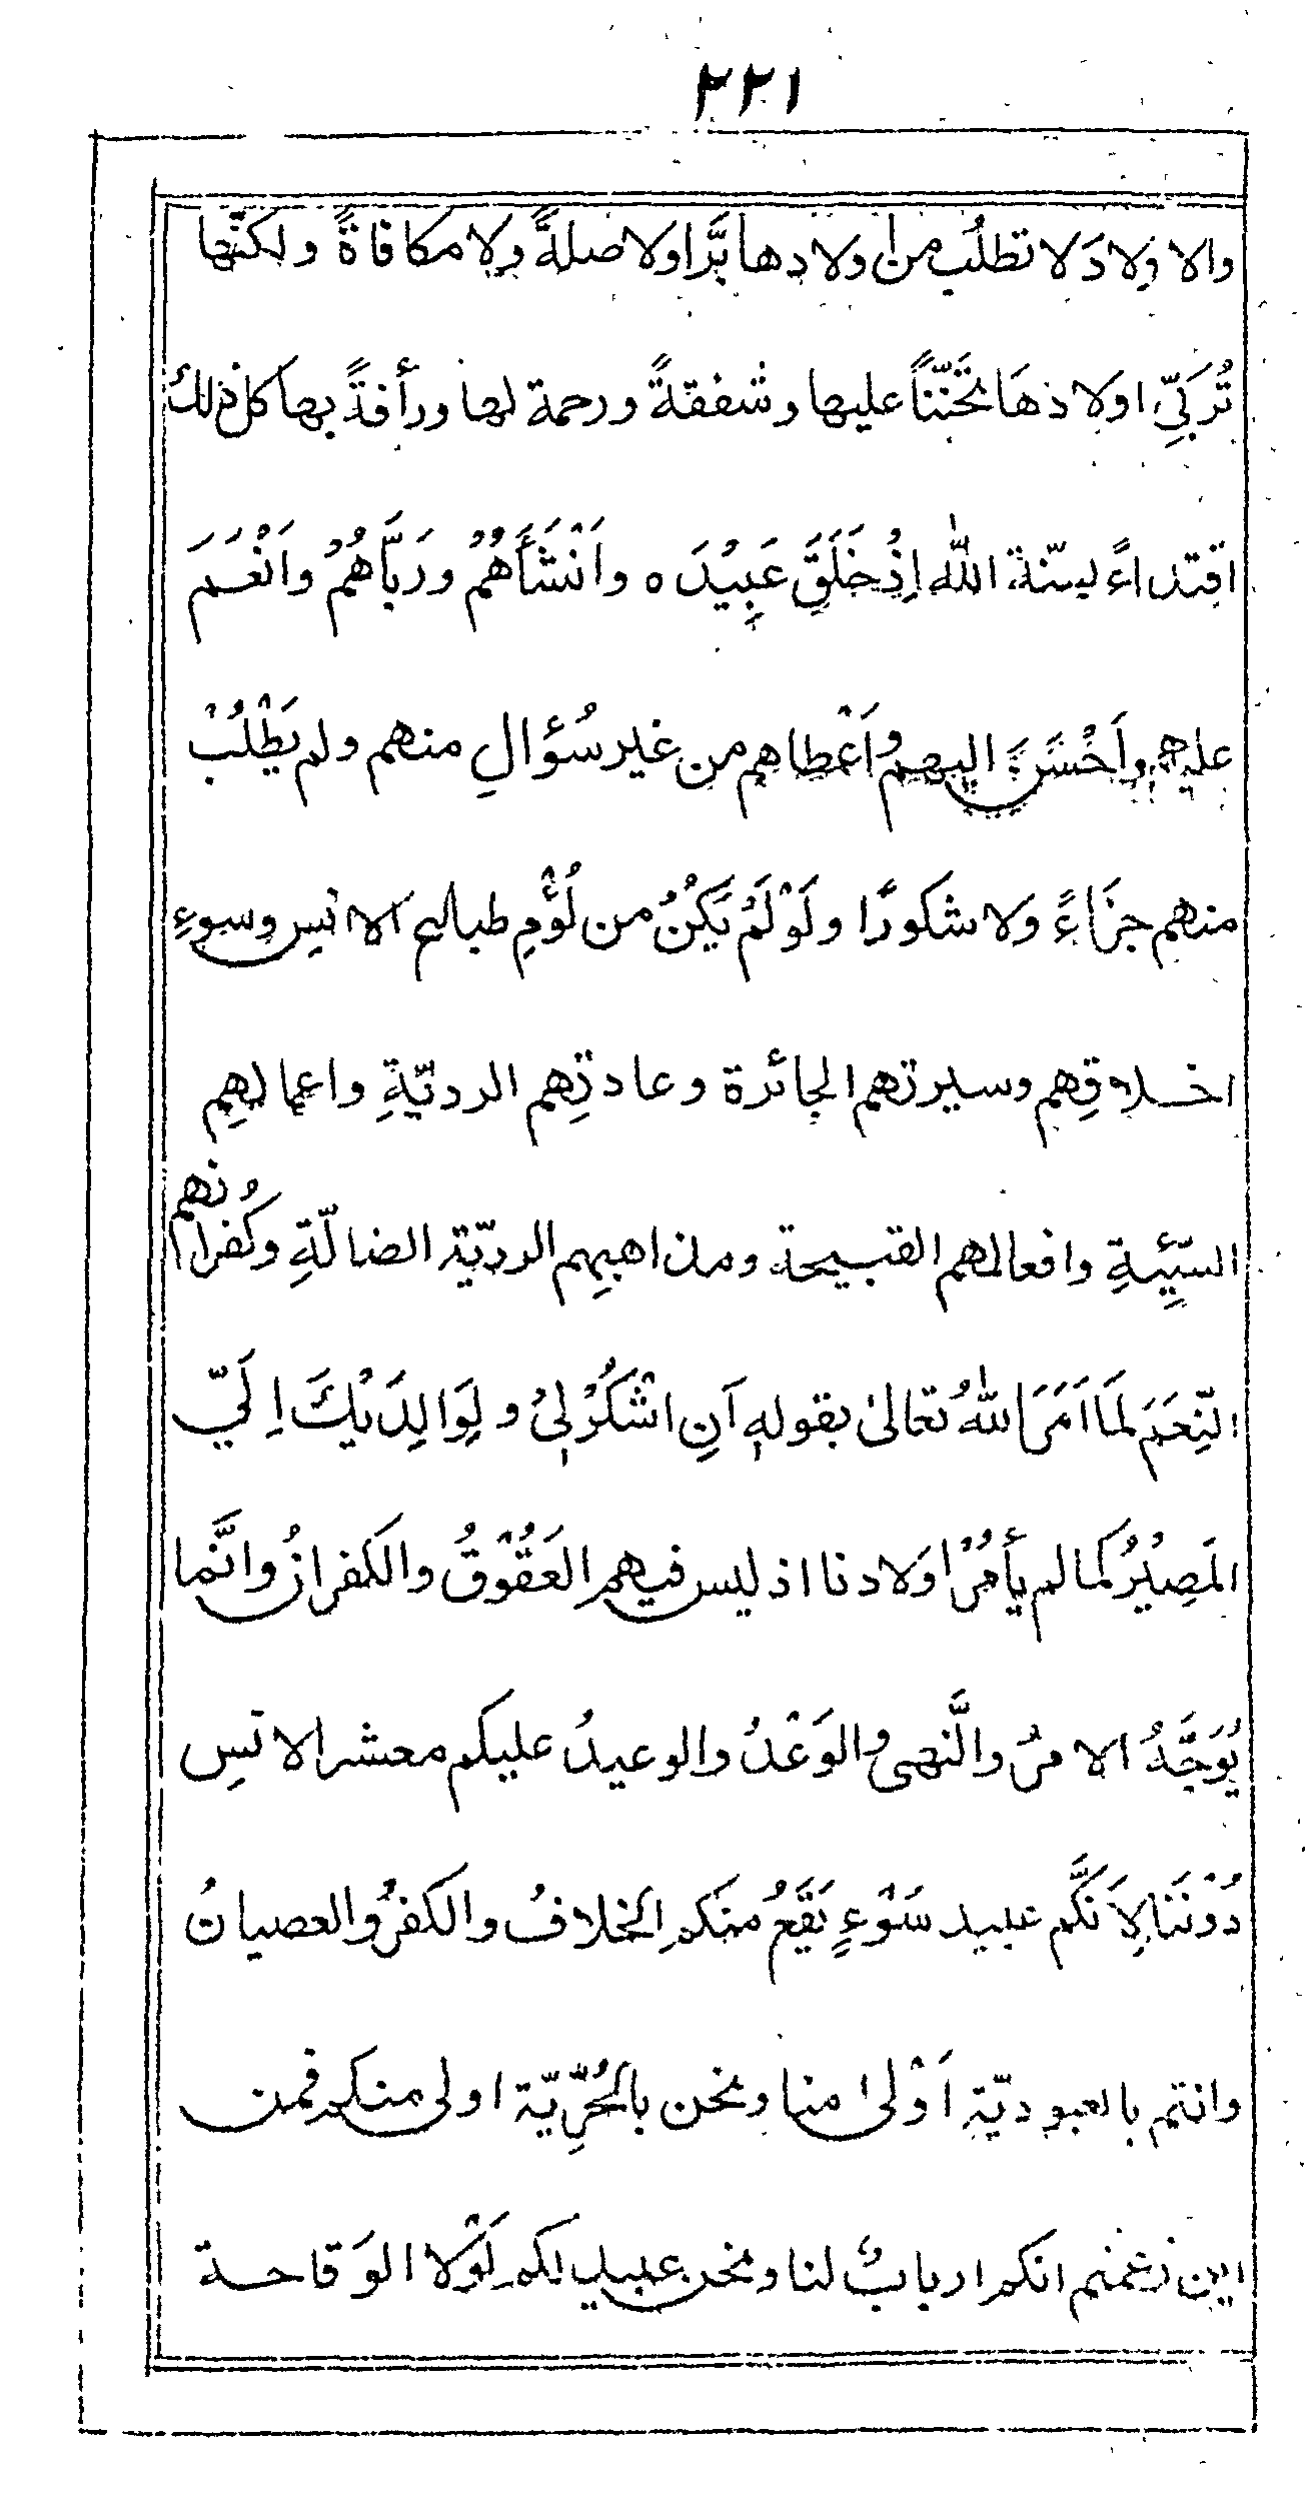 ٢٢١
والاولاد لا تطلُب من اولادها بَرًّا ولا صلةً ولا مكافاةً ولكنّها
تُرَبِّی اولادهَا تَحَنُّنًا عليها وشفقةً ورحمة لها ورأفةً بها كل ذلك
اقتداءً لسنّة اللّٰه اِذْ خَلَقَ عَبِيْدَه وَاَنْشَأَهُمْ ورَبَّاهُمْ وَاَنْعَمَ
عليهم واَحْسَنَ اليهم واَعْطاهم من غير سُؤالِ منهم ولم يَطْلُبْ
منهم جزَاءً ولا شكورًا ولَوْ لَمْ يَكُنْ من لُؤْمِ طبائع الانس وسوءِ
اخلاقِهم وسيرتهم الجائرة وعادتِهم الرديّةِ واعمالهِم
السّيِّئةِ وافعالهم القبيحة ومذاهبِهم الرديّة الضالّةِ وكُفرانهم
النِّعَمَ لَمَا اَمَرَ اللّٰهُ تعالىٰ بقولهٖ اَنِ اشْكُرْ لِیْ ولِوَالِدَيْكَ اِلَیّ
المَصِيْرُ كما لم يأمُرْ اولادنا اذ ليس فيهم العَقُوْقُ والكفرانُ وانَّما
يُوَجَّهُ الامرُ والنَّهى والوَعْدُ والوعيدُ عليكم معشر الانسِ
دُوْنَنَا لِاَنَّكُم عبيد سَوْءٍ يَقَعُ منكم الخلافُ والكفرُ والعصيانُ
وانتم بالعبوديّة اَوْلىٰ منا ونحن بالحُرِّيّة اولى منكم فمن
اين زعمتم انكم اربابٌ لنا ونحن عبيد لكم لَوْلا الوَقاحة